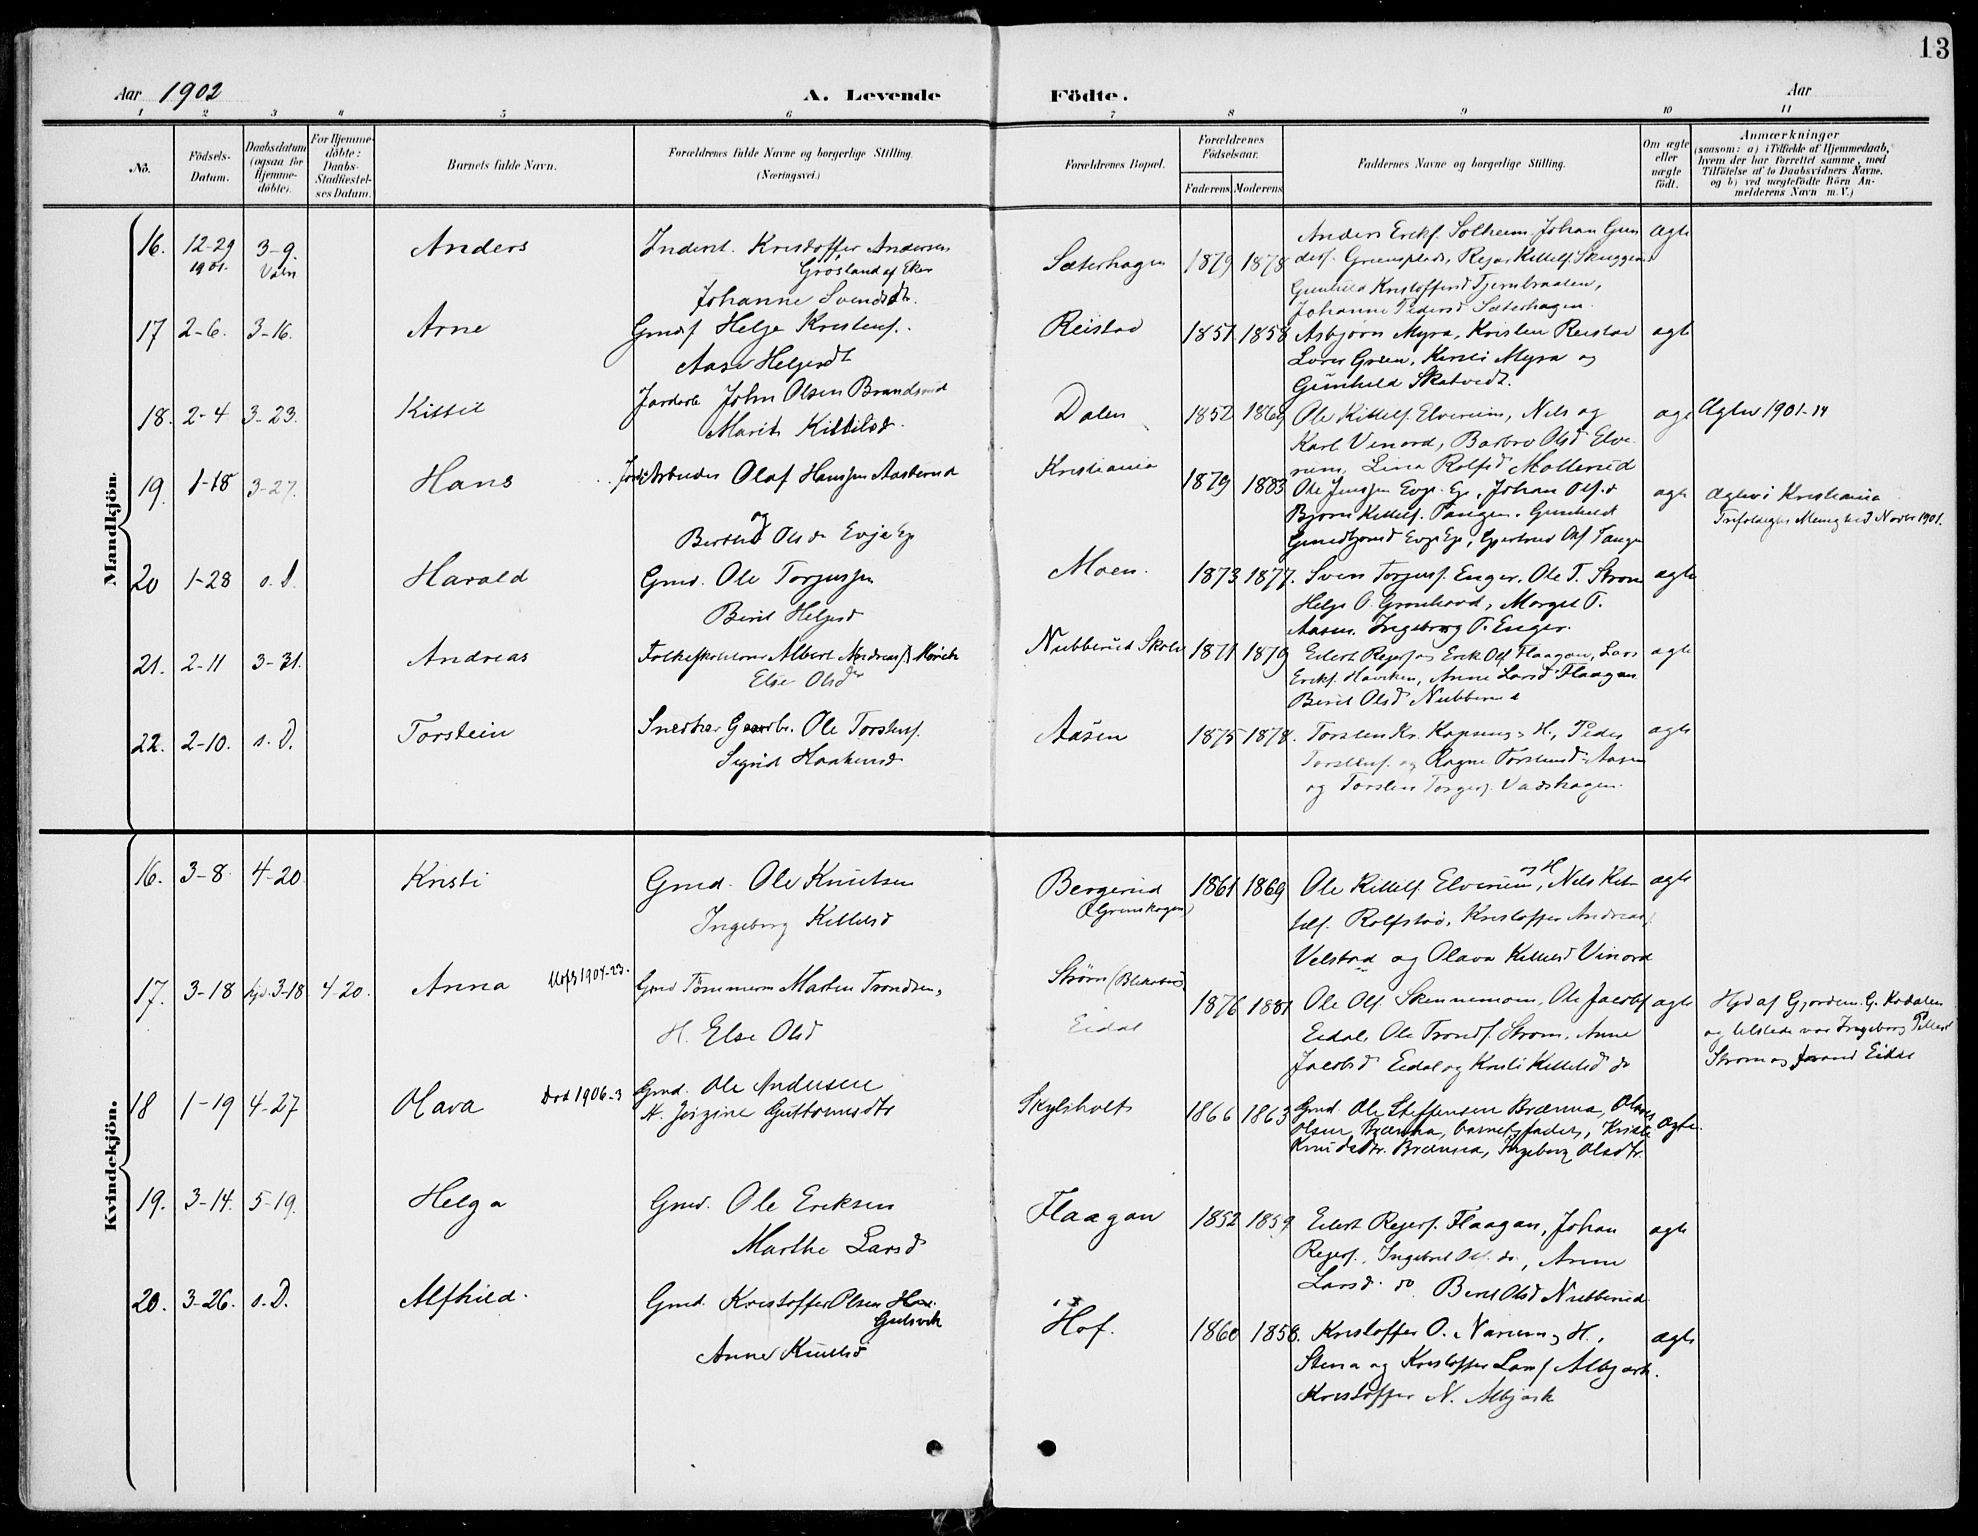 13
Aar 1902
A. Levende Födte.
Aar
1 2 3 4 5 6 7 8 9 10 11
No.
Födsels-Datum.
Daabsdatum (ogsaa for Hjemme-döbte).
For Hjemme-döbte: Daabs-Stadfæstel-ses Datum.
Barnets fulde Navn.
Forældrenes fulde Navne og borgerlige Stilling. (Næringsvei.)
Forældrenes Bopæl.
Forældrenes Födselsaar.
Faderens Moderens
Faddernes Navne og borgerlige Stilling.
Om ægte eller uægte födt.
Anmærkninger
(saasom: a) i Tilfælde af Hjemmedaab, hvem der har forrettet samme, med Tilföielse af to Daabsvidners Navne, og b) ved uægtefödte Börn An-melderens Navn m. V.)
Mandkjön.
16. 12-29 1901. 3-9. Anders
Kristoffer Andersen
Johanne Svendsdtr.
Sæterhagen 1879 1878
Anders Eriks. Solheim. Johan Gun
Gunhild Kristoffersd
Johanne Pedersd Sæterhagen. ægte
17 2-6. 3-16. Arne
Gmd Helge Kristens.
Aase Helgesdt
Reistad 1851. 1858
Asbjørn Myra, Kristen Reistad
Lovis Green, Kirsti Myra og
Gunhild Skatvedt. ægte
18. 2-4 3-23. Kittil
John Olsen Brandsrud
Marit Kittilsd.
Dalen 1852 1869
Ole Kittils. Elverum, Nils og
Karl Vinord, Barbro Olsd Elve-
rum, Lina Rolfsd Mollerud ægte
1901-14
19. 1-18 3-27. Hans
Arbeider Olaf Hanssen Aasterud
og
Berthe Olsd Evje Eje
Kristiania 1879 1883
Ole Jenssen Evje Eje, Johan Ols. d
Bjørn Kittils. Tangen. Gunhild
ægte
Kristiania
20 1-28 s. D. Harald
Gmd. Ole Torgussen
Birit Helgesd
Moen. 1873 1877.
Sven Torgers. Enger. Ole T. Strøm
Helge O. Grønhovd, Margit T.
Aasen. Ingeborg T. Enger. ægte
21. 2-11 3-31. Andreas
Folkeskolelærer Albert Andreas Mørch
Else Olsdtr
Nubberud Skole 1871 1879
Eilert Regers og Erik Ols Flaagan, Lars
Eriks. Haviken, Anne Larsd Flaagan
Birit Olsd Nubberud ægte
22. 2-10. s. D. Torstein
Snedker Gaardbr. Ole Torstens.
Sigrid Haakensd
Aasen 1875 1878.
Torsten Kr. Kopseng og H., Peder
Torstens. og Ragne Torstensd. Aasen
og Torsten Torgers. Vadshagen ægte
Kvindekjön.
16. 3-8. 4-20. Kristi
Gmd. Ole Knutsen
Ingeborg Kittilsd
Bergerud
(Grønskogen) 1861 1869
Ole Kittils. Elverum og H, Nils Kit-
tils. Rolfstad, Kristoffer Andreas
Velstad og Olava Kittilsd Vinord ægte
17. 3-18 hjd. 3-18 4-20. Anna
1907-23.
Gmd Tømmerm Martin Trondsen,
H. Else Olsd
Strøm
Eidal 1876 1881
Ole Ols. Skinnemoen, Ole Jacobs
Eidal, Ole Tronds. Strøm, Anne
Jacobsd Eidal og Kristi Kittilsd do ægte
Hjd af Gjordem. G. Kodalen
og tilstede var Ingeborg
Strøm og Eidal
18 1-19 4-27 Olava
Død 1906-3
Gmd. Ole Andersen
H. Jørgine Guttormsdtr
Skylsholt 1866 1863
Gmd. Ole Steffensen Brænna,
Olsen Brænna, barnets fader,
Knudsdtr. Brænna, Ingeborg Olsdtr. ægte.
19. 3-14. 5-19. Helga
Gmd. Ole Eriksen
Marthe Larsd
Flaagan 1852 1859
Eilert Regers. Flaagan, Johan
Regers., Ingebret Ols. do, Anne
Larsd. do. Birit Olsd Nubberud ægte
20. 3-26. s. D. Alfhild.
Gmd. Kristoffer Olsen
Gulsvik
Anne Knutsd
Hof. 1860 1858.
Kristoffer O. Narum og H.,
Stina og Kristoffer Lars Albjerk.
Kristoffer N. Albjerk ægte